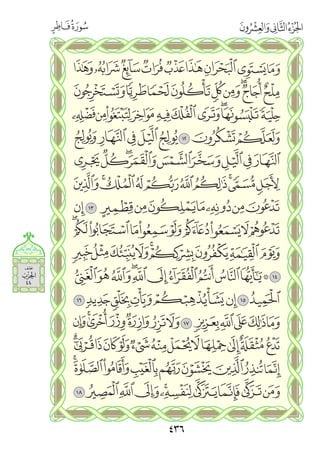 الجُزْءُ الثَّانِي وَالعِشْرُونَ
سُورَةُ فَاطِرٍ
وَمَا يَسْتَوِي الْبَحْرَانِ هَٰذَا عَذْبٌ فُرَاتٌ سَائِغٌ شَرَابُهُ وَهَٰذَا
مِلْحٌ أُجَاجٌ ۖ وَمِن كُلٍّ تَأْكُلُونَ لَحْمًا طَرِيًّا وَتَسْتَخْرِجُونَ
حِلْيَةً تَلْبَسُونَهَا ۖ وَتَرَى الْفُلْكَ فِيهِ مَوَاخِرَ لِتَبْتَغُوا مِن فَضْلِهِ
وَلَعَلَّكُمْ تَشْكُرُونَ ١٢ يُولِجُ اللَّيْلَ فِي النَّهَارِ وَيُولِجُ
النَّهَارَ فِي اللَّيْلِ وَسَخَّرَ الشَّمْسَ وَالْقَمَرَ ۖ كُلٌّ يَجْرِي
لِأَجَلٍ مُّسَمًّى ۚ ذَٰلِكُمُ اللَّهُ رَبُّكُمْ لَهُ الْمُلْكُ ۚ وَالَّذِينَ
تَدْعُونَ مِن دُونِهِ مَا يَمْلِكُونَ مِن قِطْمِيرٍ ١٣ إِن
تَدْعُوهُمْ لَا يَسْمَعُوا دُعَاءَكُمْ وَلَوْ سَمِعُوا مَا اسْتَجَابُوا لَكُمْ ۖ
وَيَوْمَ الْقِيَامَةِ يَكْفُرُونَ بِشِرْكِكُمْ ۚ وَلَا يُنَبِّئُكَ مِثْلُ خَبِيرٍ
١٤ يَا أَيُّهَا النَّاسُ أَنتُمُ الْفُقَرَاءُ إِلَى اللَّهِ ۖ وَاللَّهُ هُوَ الْغَنِيُّ
الْحَمِيدُ ١٥ إِن يَشَأْ يُذْهِبْكُمْ وَيَأْتِ بِخَلْقٍ جَدِيدٍ ١٦
وَمَا ذَٰلِكَ عَلَى اللَّهِ بِعَزِيزٍ ١٧ وَلَا تَزِرُ وَازِرَةٌ وِزْرَ أُخْرَىٰ ۚ وَإِن
تَدْعُ مُثْقَلَةٌ إِلَىٰ حِمْلِهَا لَا يُحْمَلْ مِنْهُ شَيْءٌ وَلَوْ كَانَ ذَا قُرْبَىٰ ۗ
إِنَّمَا تُنذِرُ الَّذِينَ يَخْشَوْنَ رَبَّهُم بِالْغَيْبِ وَأَقَامُوا الصَّلَاةَ ۚ
وَمَن تَزَكَّىٰ فَإِنَّمَا يَتَزَكَّىٰ لِنَفْسِهِ ۚ وَإِلَى اللَّهِ الْمَصِيرُ ١٨
٤٣٦